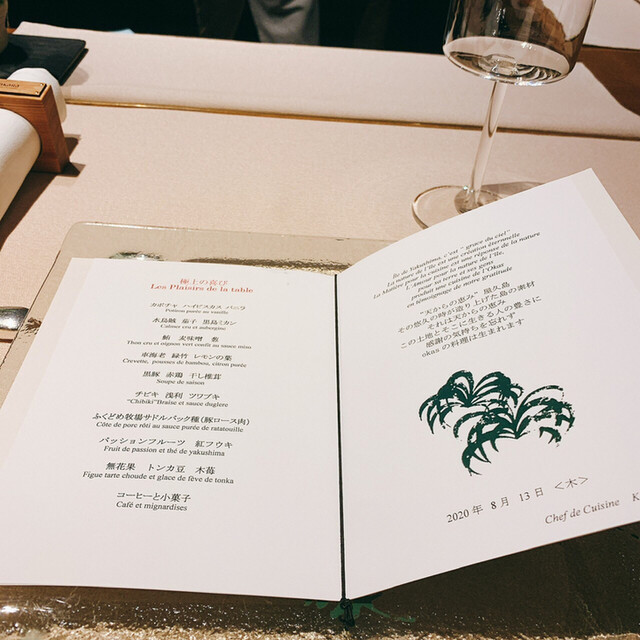 極上の喜び
Les Plaisirs de la table
カボチャ ハイビスカス バニラ
Potiron purée au vanille
水烏賊 茄子 黒島ミカン
Calmez cru et aubergine
鮪 麦味噌 葱
Thon cru et oignon vert confit au sauce miso
車海老 緑竹 レモンの葉
Crevette, pousses de bambou, citron purée
黒豚 赤鶏 干し椎茸
Soupe de saison
チビキ 浅利 ツワブキ
"Chibiki"Braise et sauce duglere
ふくどめ牧場サドルバック種(豚ロース肉)
Côte de porc rôti au sauce purée de ratatouille
パッションフルーツ 紅フウキ
Fruit de passion et thé de yakushima
無花果 トンカ豆 木苺
Figue tarte choude et glace de fève de tonka
コーヒーと小菓子
Café et mignardises
Île de Yakushima, c'est " grace du ciel"
La nature de l'île est une création éternelle
La Matière pour la cuisine est une réponse de la nature
L'Amour pour la nature de l'île,
pour sa terre et ses gens
produit une cuisine de l'Okas
en témoignage de notre gratitude
"天からの恵み" 屋久島
その悠久の時が造り上げた島の素材
それは天からの恵み
この土地とそこに生きる人の豊さに
感謝の気持ちを忘れず
okas の料理は生まれます
2020 年 8 月 13 日 <木>
Chef de Cuisine K